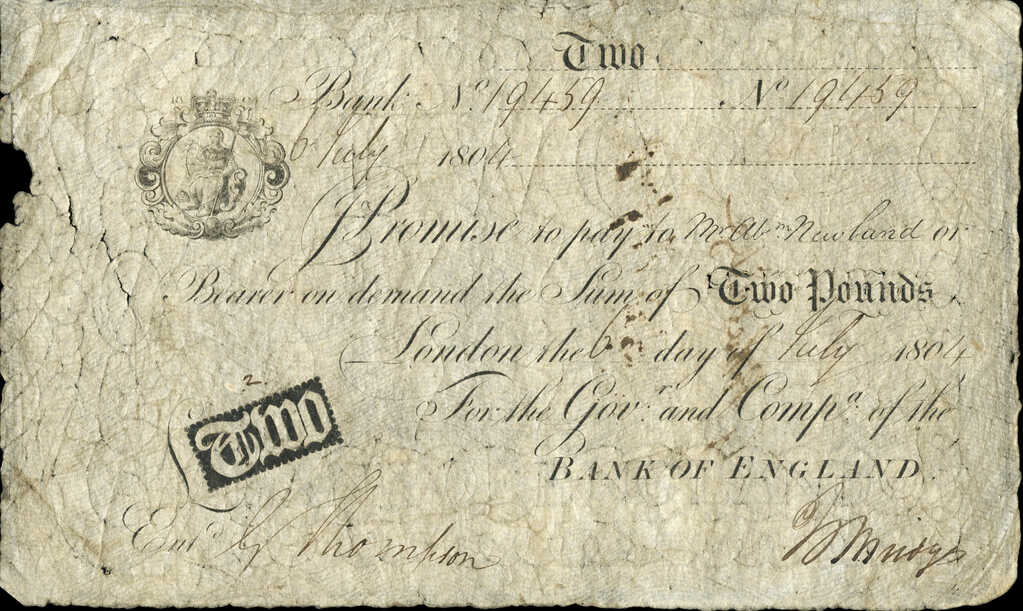 Two
Bank No 19459 No 19459
6 July 1804
I Promise to pay to Mr. Abm. Newland or
Bearer on demand the Sum of Two Pounds
London the 6 day of July 1804
For the Govr. and Compa. of the
BANK OF ENGLAND.
2
Two
Entd. Thompson